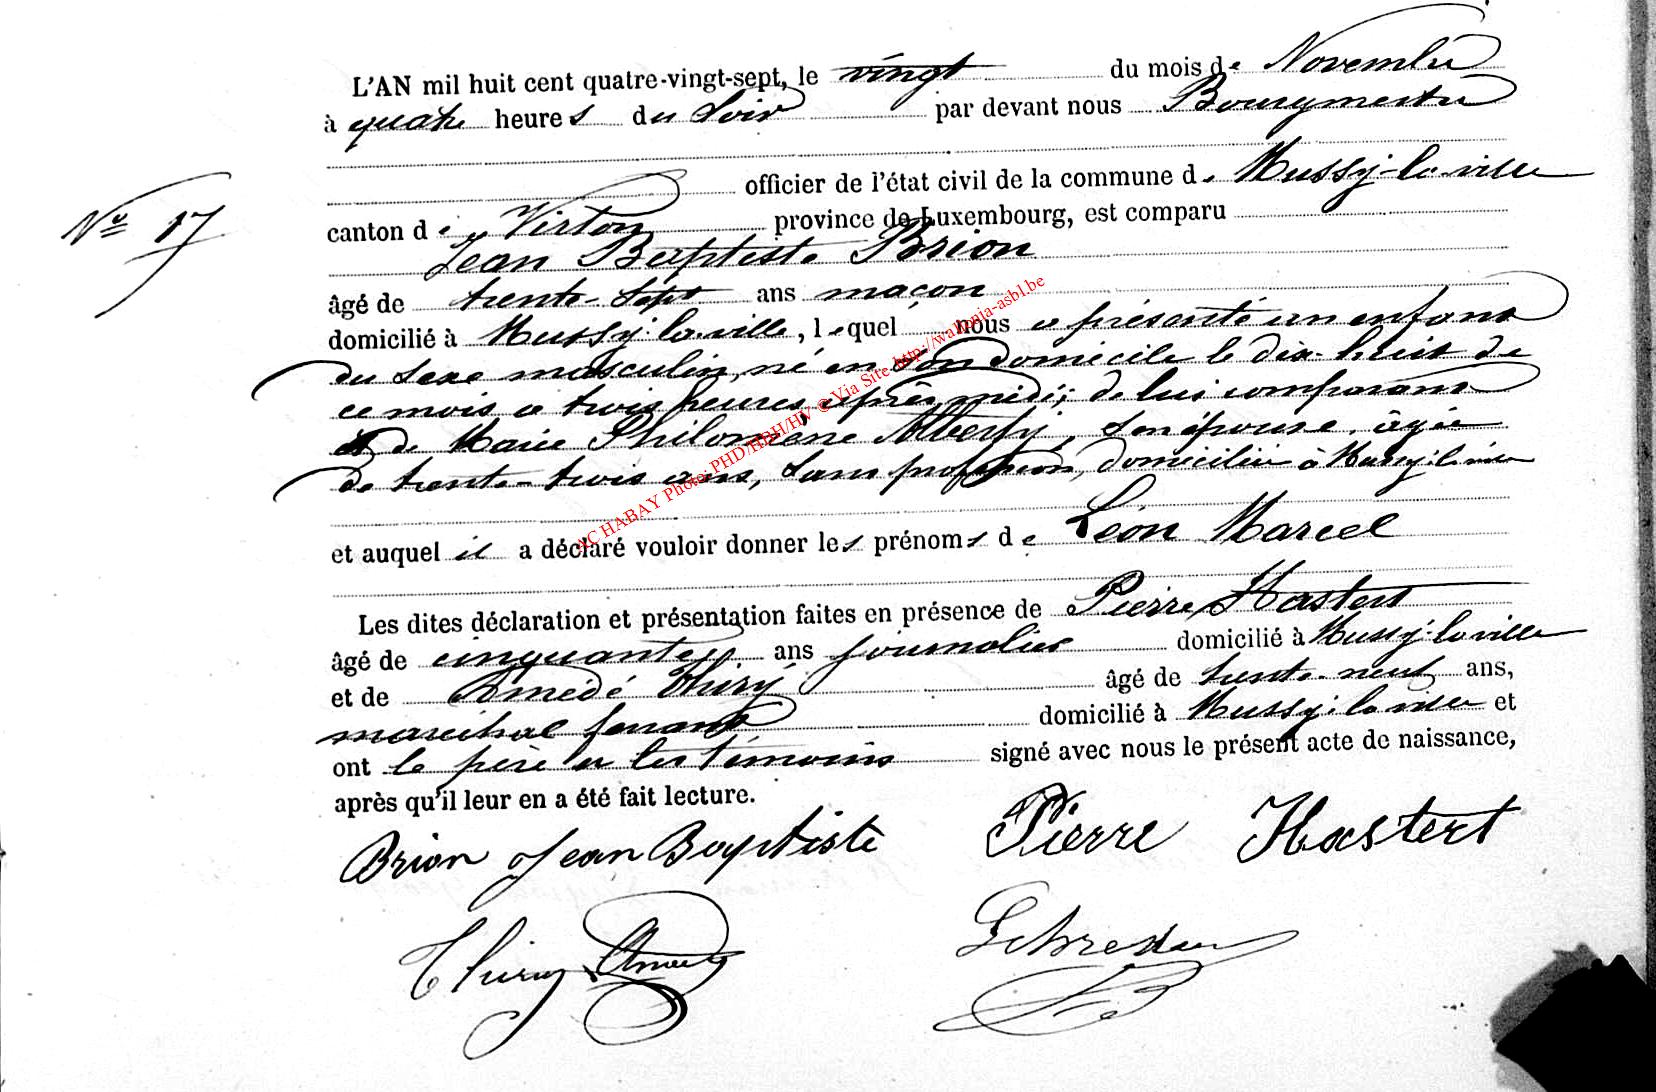 L'AN mil huit cent quatre-vingt-sept, le vingt du mois de Novembre
à quatre heures du Soir par devant nous Bourgmestre
officier de l'état civil de la commune de Mussy-la-ville
No 17
canton de Virton province de Luxembourg, est comparu
Jean Baptiste Brion
âgé de trente-sept ans maçon
domicilié à Mussy-la-ville, lequel nous a présenté un enfant
du sexe masculin, né en son domicile le dix-huit de
ce mois à trois heures après midi; de lui comparant
et de Marie Philomène son épouse, âgée
de trente-trois ans, sans profession, domiciliée à Mussy-la-ville
et auquel il a déclaré vouloir donner les prénoms de Léon Marcel
Les dites déclaration et présentation faites en présence de Pierre Hastert
âgé de cinquante ans journalier domicilié à Mussy-la-ville
et de Amédé Thiry âgé de trente-neuf ans,
maréchal ferrant domicilié à Mussy-la-ville et
ont le père et les témoins signé avec nous le présent acte de naissance,
après qu'il leur en a été fait lecture.
Brion Jean Baptiste Pierre Hastert
Thiry Amédé
ACHABAY Photos PHD/HBH/HV © Via Site http://wallonia-asbl.be